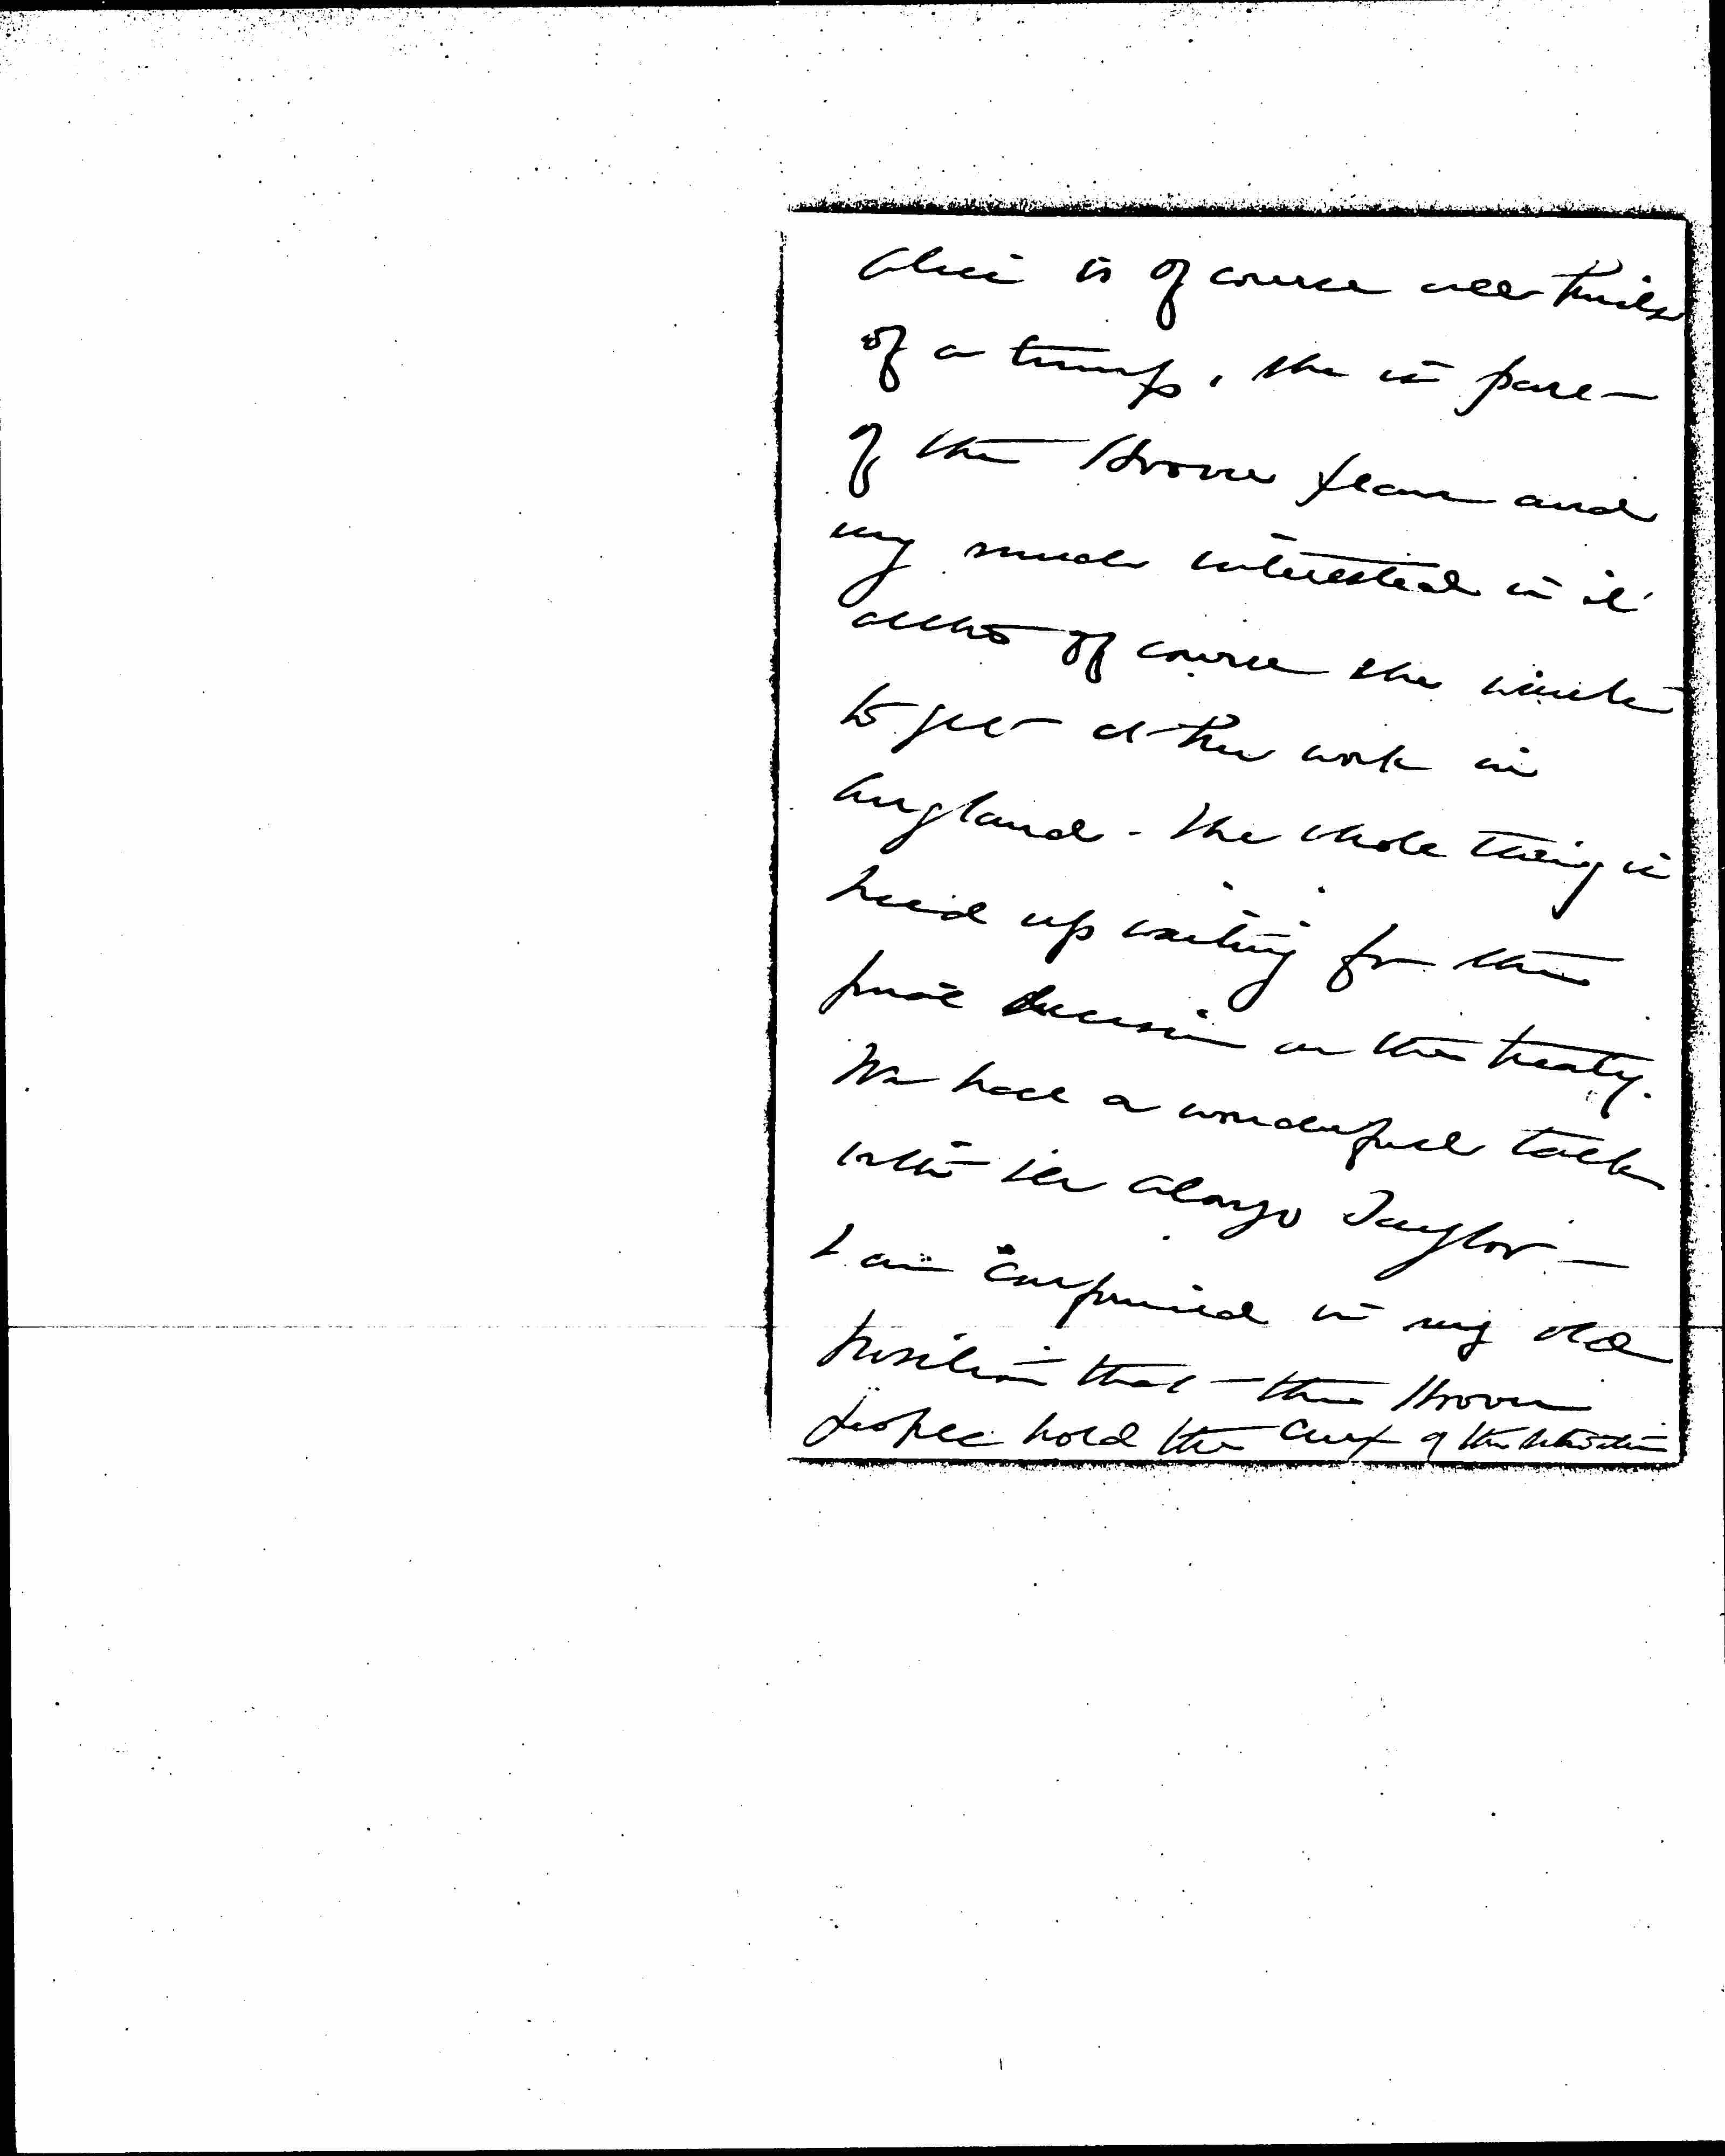 Alice is of course all kinds
of a trump, she is part
of the Hoover team and
very much interested in it
altho of course she wants
to get at the work in
England. The whole thing is
held up waiting for the
final decision on the treaty.
We had a wonderful talk
with Dr Alonzo Taylor —
I am confirmed in my old
position that the Hoover
people hold the crux of the situation